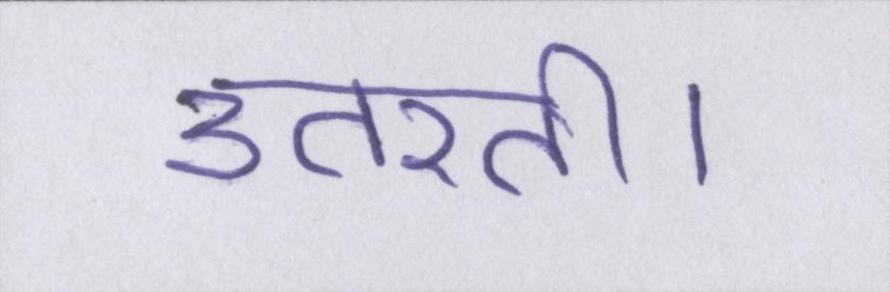 उतरती।